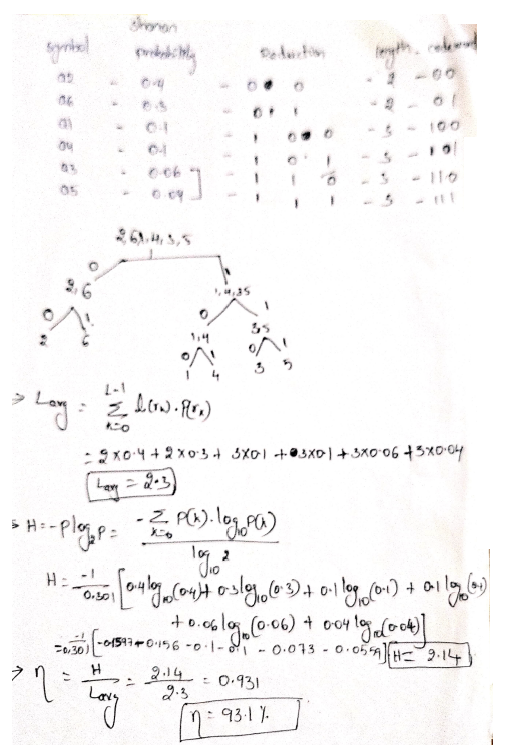 Shanon
Symbol probability Reduction length codeword
a2 - 0.4 - 0 0 - 2 - 00
a6 - 0.3 - 0 1 - 2 - 01
a1 - 0.1 - 1 0 0 - 3 - 100
a4 - 0.1 - 1 0 1 - 3 - 101
a3 - 0.06 - 1 1 0 - 3 - 110
a5 - 0.04 - 1 1 1 - 3 - 111
2,6,1,4,3,5
0 1
2,6 1,4,3,5
0 1 0 1
2 6 1,4 3,5
0 1 0 1
1 4 3 5
⇒ Lavg = L-1 Σ k=0 l(rk).P(rk)
= 2x0.4 + 2x0.3 + 3x0.1 + 3x0.1 + 3x0.06 + 3x0.04
Lavg = 2.3
⇒ H = -Plog2P = -Σ k=0 P(k).log10P(k) / log10 2
H = -1/0.301 [0.4log10(0.4) + 0.3log10(0.3) + 0.1log10(0.1) + 0.1log10(0.1)
+ 0.06log10(0.06) + 0.04log10(0.04)]
= -1/0.301 [-0.1597 - 0.156 - 0.1 - 0.1 - 0.073 - 0.0559] H = 2.14
⇒ η = H/Lavg = 2.14/2.3 = 0.931
η = 93.1%